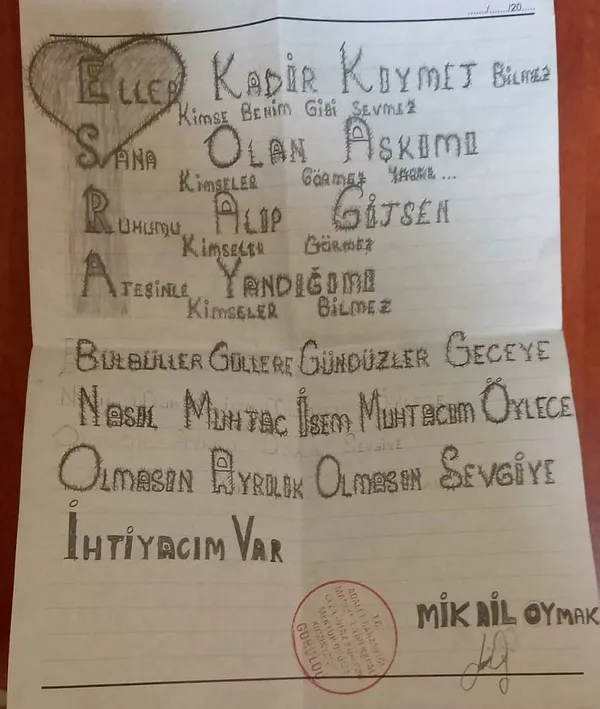 ....../....../20.....
ELLER KADİR KIYMET BİLMEZ
KİMSE BENİM GİBİ SEVMEZ
SANA OLAN AŞKIMI
KİMSELER GÖRMEZ
RUHUMU ALIP GİTSEN
KİMSELER GÖRMEZ
ATEŞİNLE YANDIĞIMI
KİMSELER BİLMEZ
BÜLBÜLLER GÜLLERE GÜNDÜZLER GECEYE
NASIL MUHTAÇ İSEM MUHTACIM ÖYLECE
OLMASIN AYRILIK OLMASIN SEVGİYE
İHTİYACIM VAR
MİKAİL OYMAK
T.C.
ADALET BAKANLIĞI
GÖRÜLDÜ